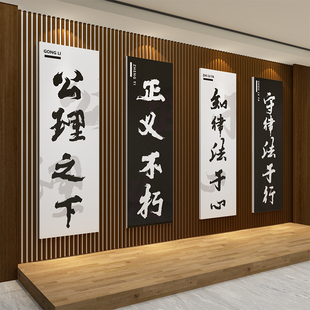 GONG LI
公理之下
ZHENG YI
正义不朽
知律法于心
守律法于行